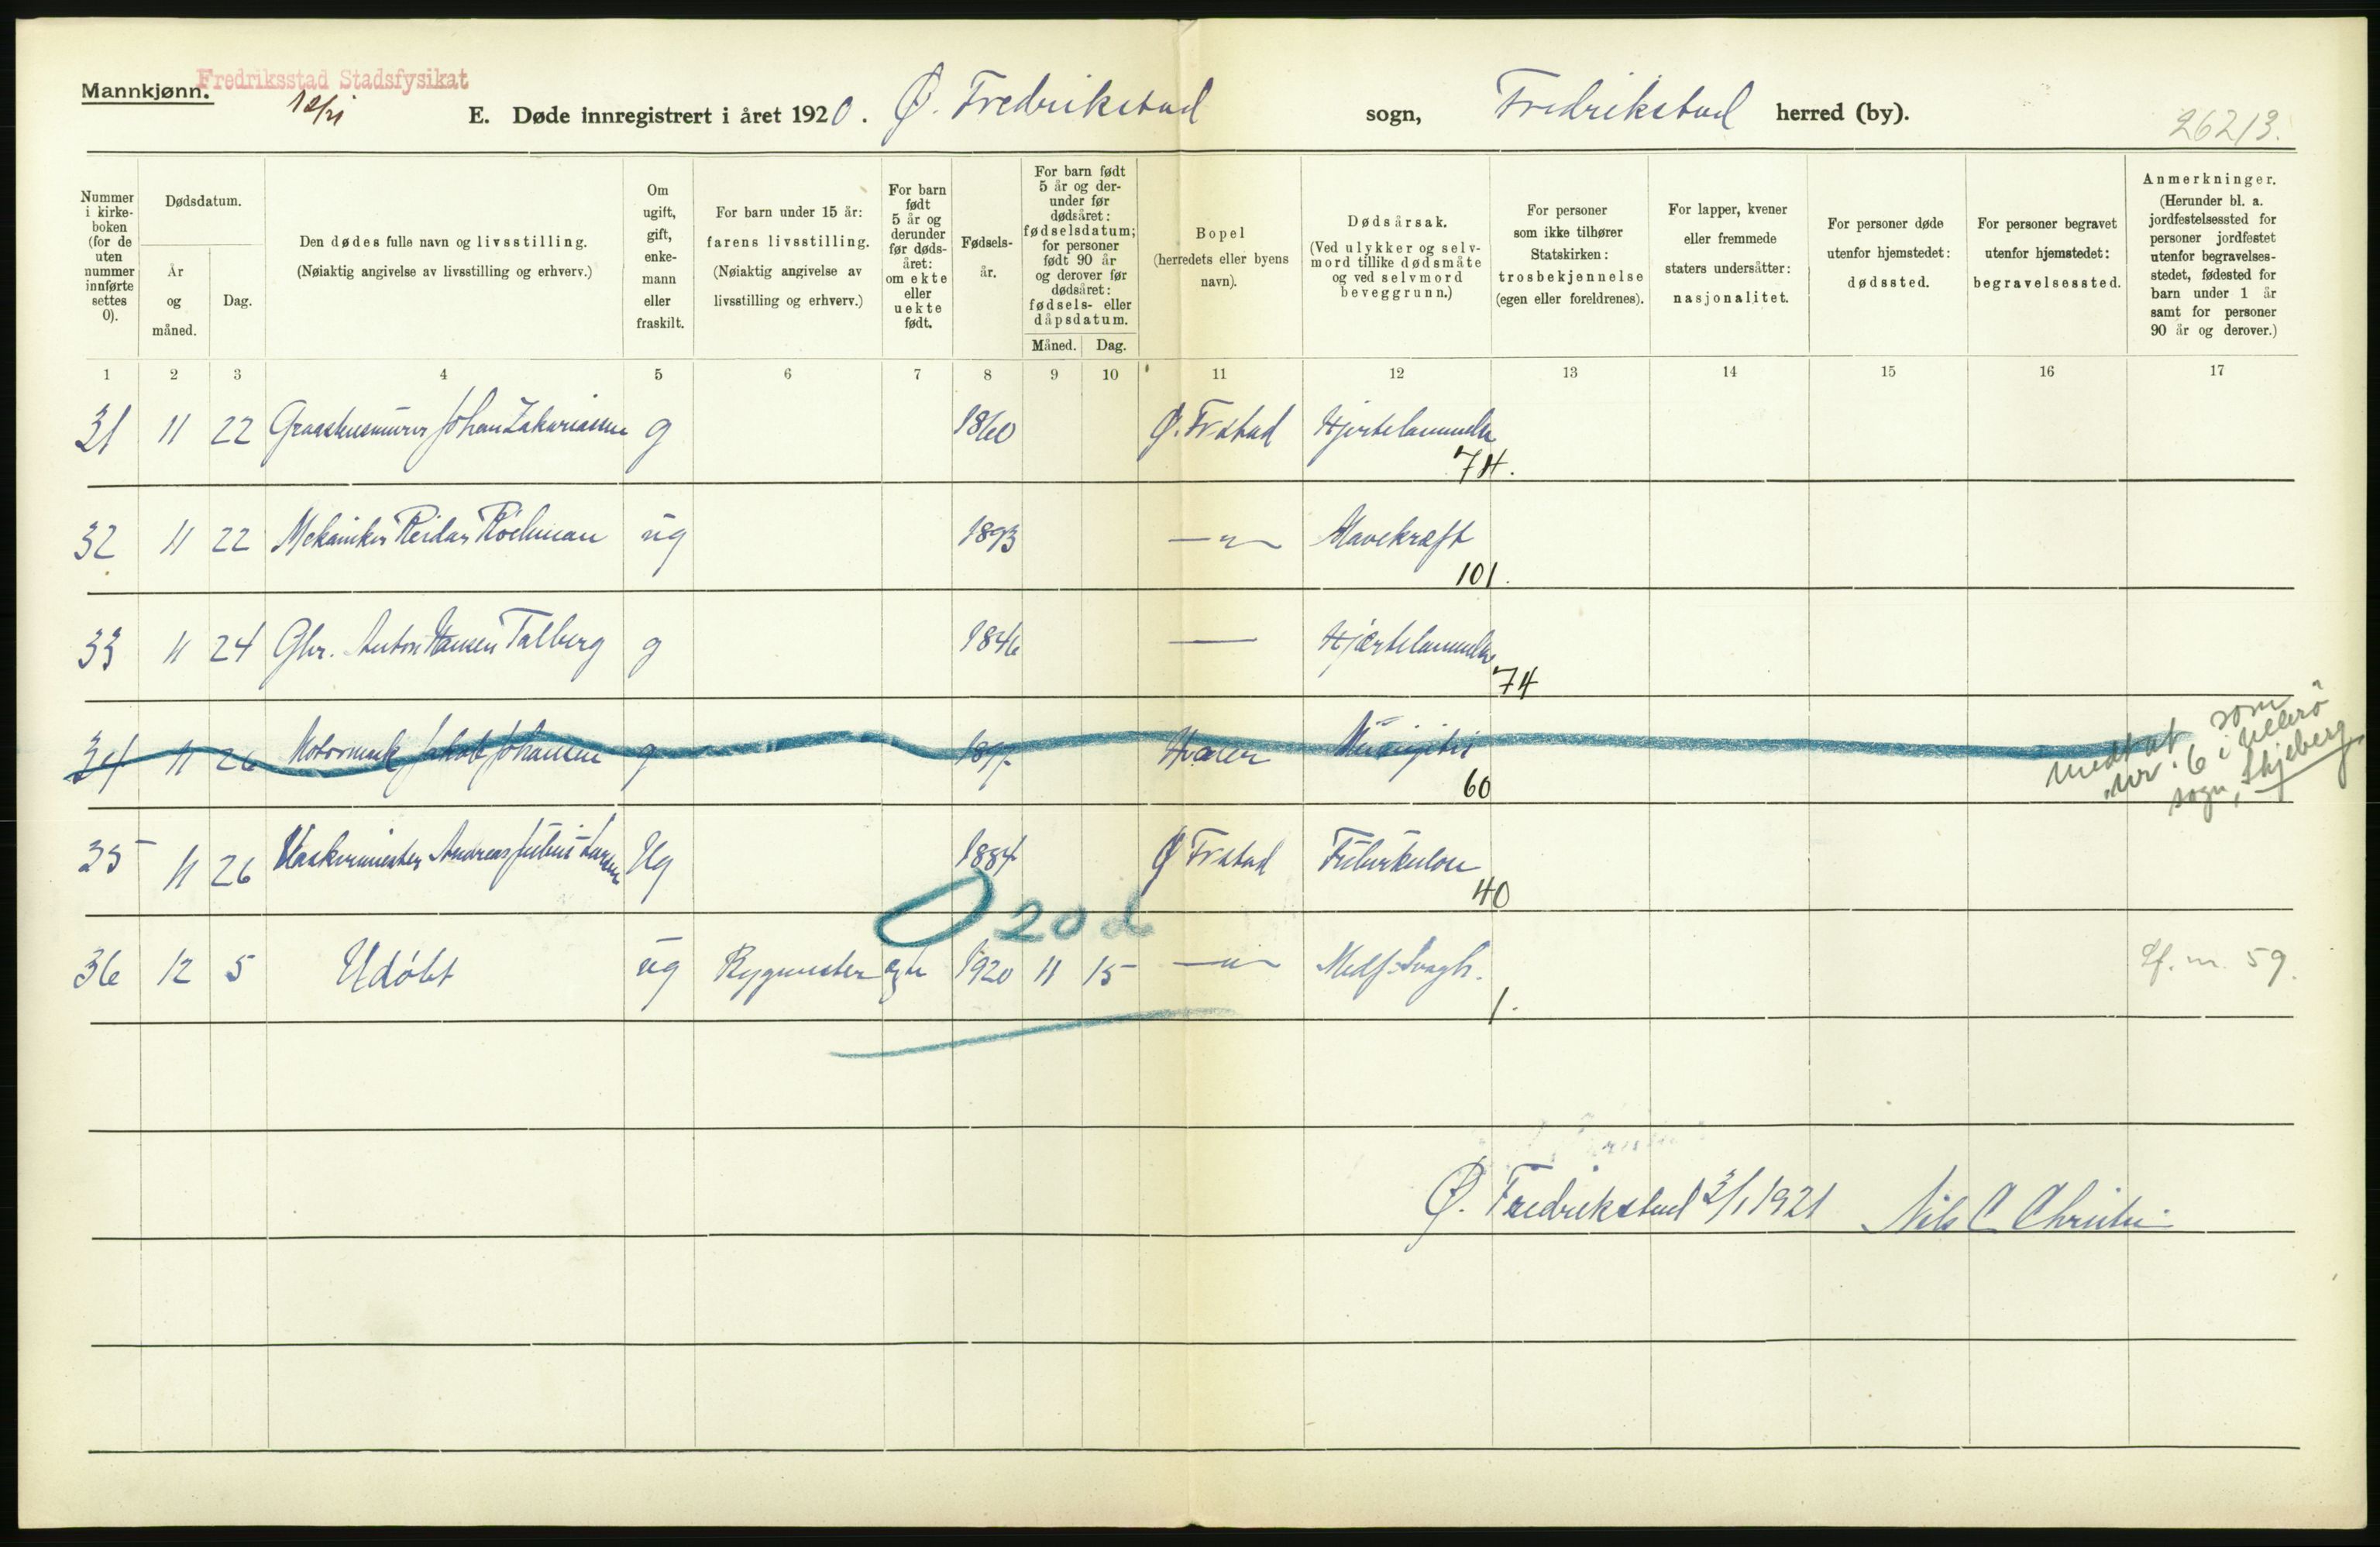 Mannkjønn.
Fredriksstad Stadsfysikat
12/21
E. Døde innregistrert i året 1920. Ø. Fredrikstad sogn, Fredrikstad herred (by).
26213.
Nummer i kirke-boken (for de uten nummer innførte settes 0).
Dødsdatum.
År og måned.
Dag.
Den dødes fulle navn og livsstilling.
(Nøiaktig angivelse av livsstilling og erhverv.)
Om ugift, gift, enke-mann eller fraskilt.
For barn under 15 år: farens livsstilling.
(Nøiaktig angivelse av livsstilling og erhverv.)
For barn født 5 år og derunder før døds-året: om ekte eller uekte født.
Fødsels-år.
For barn født 5 år og der-under før dødsåret: fødselsdatum; for personer født 90 år og derover før dødsåret: fødsels- eller dåpsdatum.
Måned. Dag.
Bopel
(herredets eller byens navn).
Dødsårsak.
(Ved ulykker og selv-mord tillike dødsmåte og ved selvmord beveggrunn.)
For personer som ikke tilhører Statskirken: trosbekjennelse (egen eller foreldrenes).
For lapper, kvener eller fremmede staters undersåtter: nasjonalitet.
For personer døde utenfor hjemstedet: dødssted.
For personer begravet utenfor hjemstedet: begravelsessted.
Anmerkninger.
(Herunder bl. a. jordfestelsessted for personer jordfestet utenfor begravelses-stedet, fødested for barn under 1 år samt for personer 90 år og derover.)
1 2 3 4 5 6 7 8 9 10 11 12 13 14 15 16 17
31 11 22 Johan Zakariassen g 1860 Ø. Frstad Hjertelammelse
74.
32 11 22 Mekaniker Reidar ug 1893 —"— Mavekræft
101.
33 11 24 Gbr. Anton Hansen Talberg g 1846 — Hjertelammelse
74
34 11 26 Jakob Johansen g Hvaler Meningitis
60
medtat som nr. 6 i Ullerö sogn, Skjeberg
35 11 26 Andreas Julius Larsen Ug 1884 Ø Frstad Tuberkulose
40
20 d
36 12 5 Udøbt ug Bygmester egte 1920 11 15 —"— Medf. Svagh.
1.
Cf. nr. 59.
Ø. Fredrikstad 3/1 1921 Nils C Christie